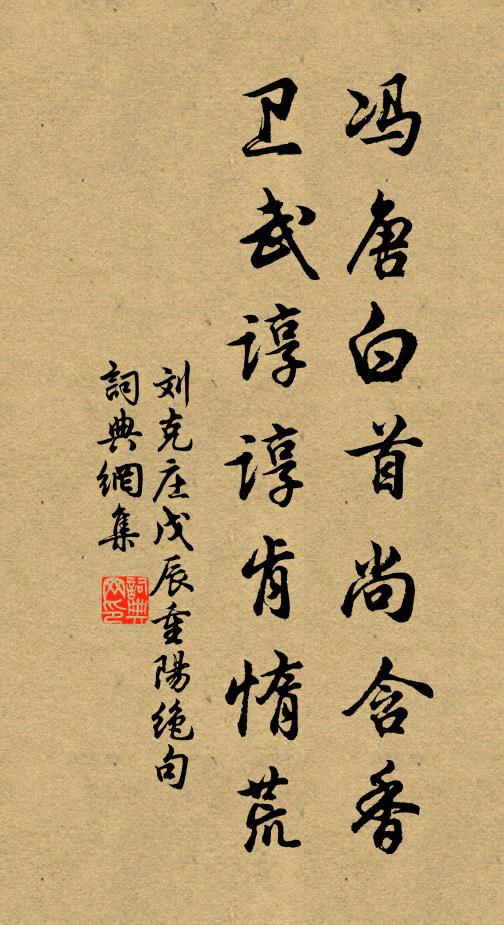 冯唐白首尚含香
卫武谆谆肯惰荒
刘克庄戊辰重陽绝句
詞典網集
詞典网印